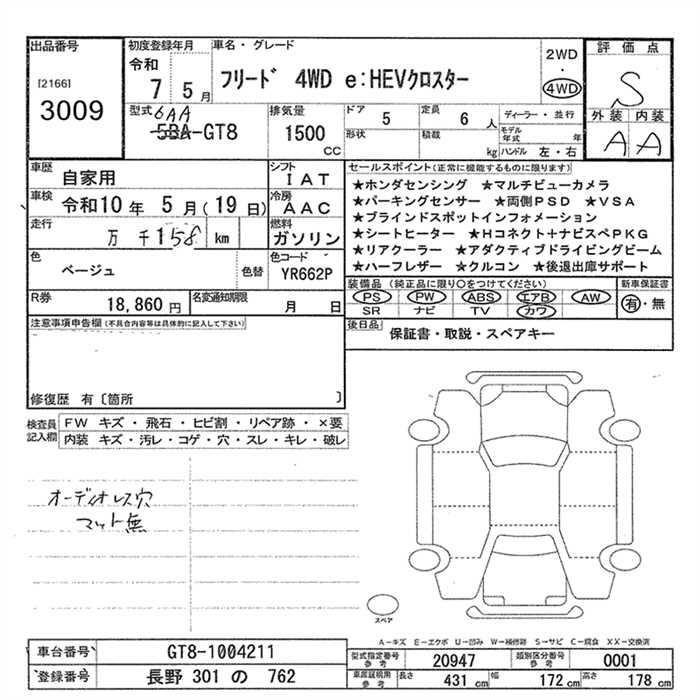 出品番号
[2166]
3009
初度登録年月
令和 7 5 月
車名・グレード
フリード 4WD e:HEVクロスター
2WD
・
4WD
評価点
S
外装 内装
A A
型式
6AA
5BA-GT8
排気量
1500 CC
ドア 5
形状
定員 6 人
積載 kg
ディーラー・並行
モデル年式 年
ハンドル 左・右
車歴 自家用
車検 令和10年 5 月(19日)
走行 万 千158 km
色 ベージュ 色替
シフト IAT
冷房 AAC
燃料 ガソリン
色コード YR662P
セールスポイント(正常に機能するものに限ります)
★ホンダセンシング ★マルチビューカメラ
★パーキングセンサー ★両側PSD ★VSA
★ブラインドスポットインフォメーション
★シートヒーター ★Hコネクト+ナビスペPKG
★リアクーラー ★アダクティブドライビングビーム
★ハーフレザー ★クルコン ★後退出庫サポート
R券 18,860 円
名変通知期限 月 日
装備品 (純正品に限り○をつけてください)
PS PW ABS エアB AW
SR ナビ TV カワ
新車保証書
有・無
注意事項申告欄(不具合内容等は具体的に記入して下さい)
後日品 保証書・取説・スペアキー
修復歴 有〔箇所 〕
検査員記入欄
FW キズ・飛石・ヒビ割・リペア跡・×要
内装 キズ・汚レ・コゲ・穴・スレ・キレ・破レ
オーディオレス穴
マット無
スペア
A-キズ E-エクボ U-凹み W-補修跡 S-サビ C-腐食 XX-交換済
車台番号 GT8-1004211
登録番号 長野 301 の 762
型式指定番号 参考 20947
類別区分番号 参考 0001
車庫証明用 参考 長さ 431 cm 幅 172 cm 高さ 178 cm